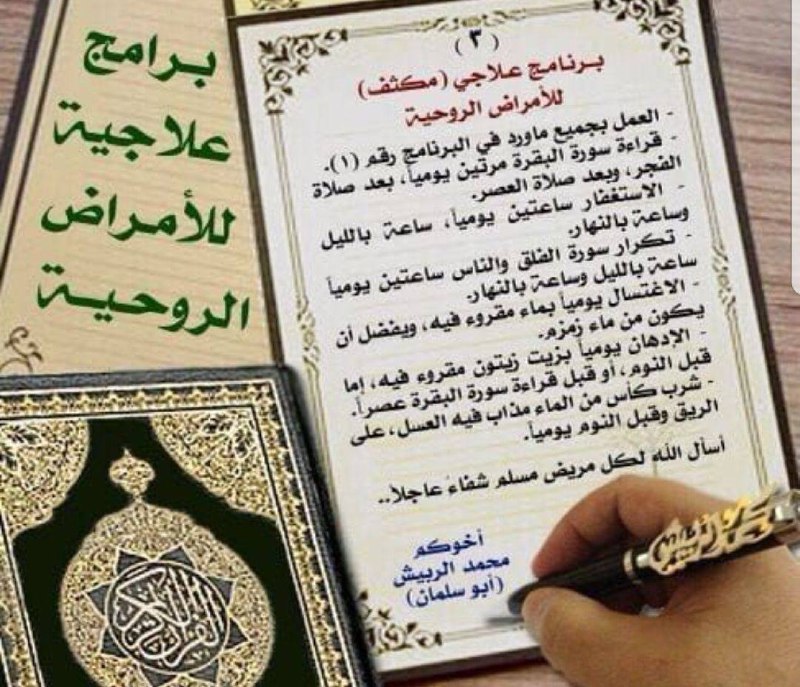 برامج
علاجية
للأمراض
الروحية
(٣)
برنامج علاجي (مكثف)
للأمراض الروحية
- العمل بجميع ماورد في البرنامج رقم (١).
- قراءة سورة البقرة مرتين يومياً، بعد صلاة
الفجر، وبعد صلاة العصر.
- الاستغفار ساعتين يومياً، ساعة بالليل
وساعة بالنهار.
- تكرار سورة الفلق والناس ساعتين يومياً
ساعة بالليل وساعة بالنهار.
- الاغتسال يومياً بماء مقروء فيه، ويفضل أن
يكون من ماء زمزم.
- الإدهان يومياً بزيت زيتون مقروء فيه، إما
قبل النوم، أو قبل قراءة سورة البقرة عصراً.
- شرب كأس من الماء مذاب فيه العسل، على
الريق وقبل النوم يومياً.
أسأل الله لكل مريض مسلم شفاءً عاجلاً..
أخوكم
محمد الربيش
(أبو سلمان)
القرآن الكريم